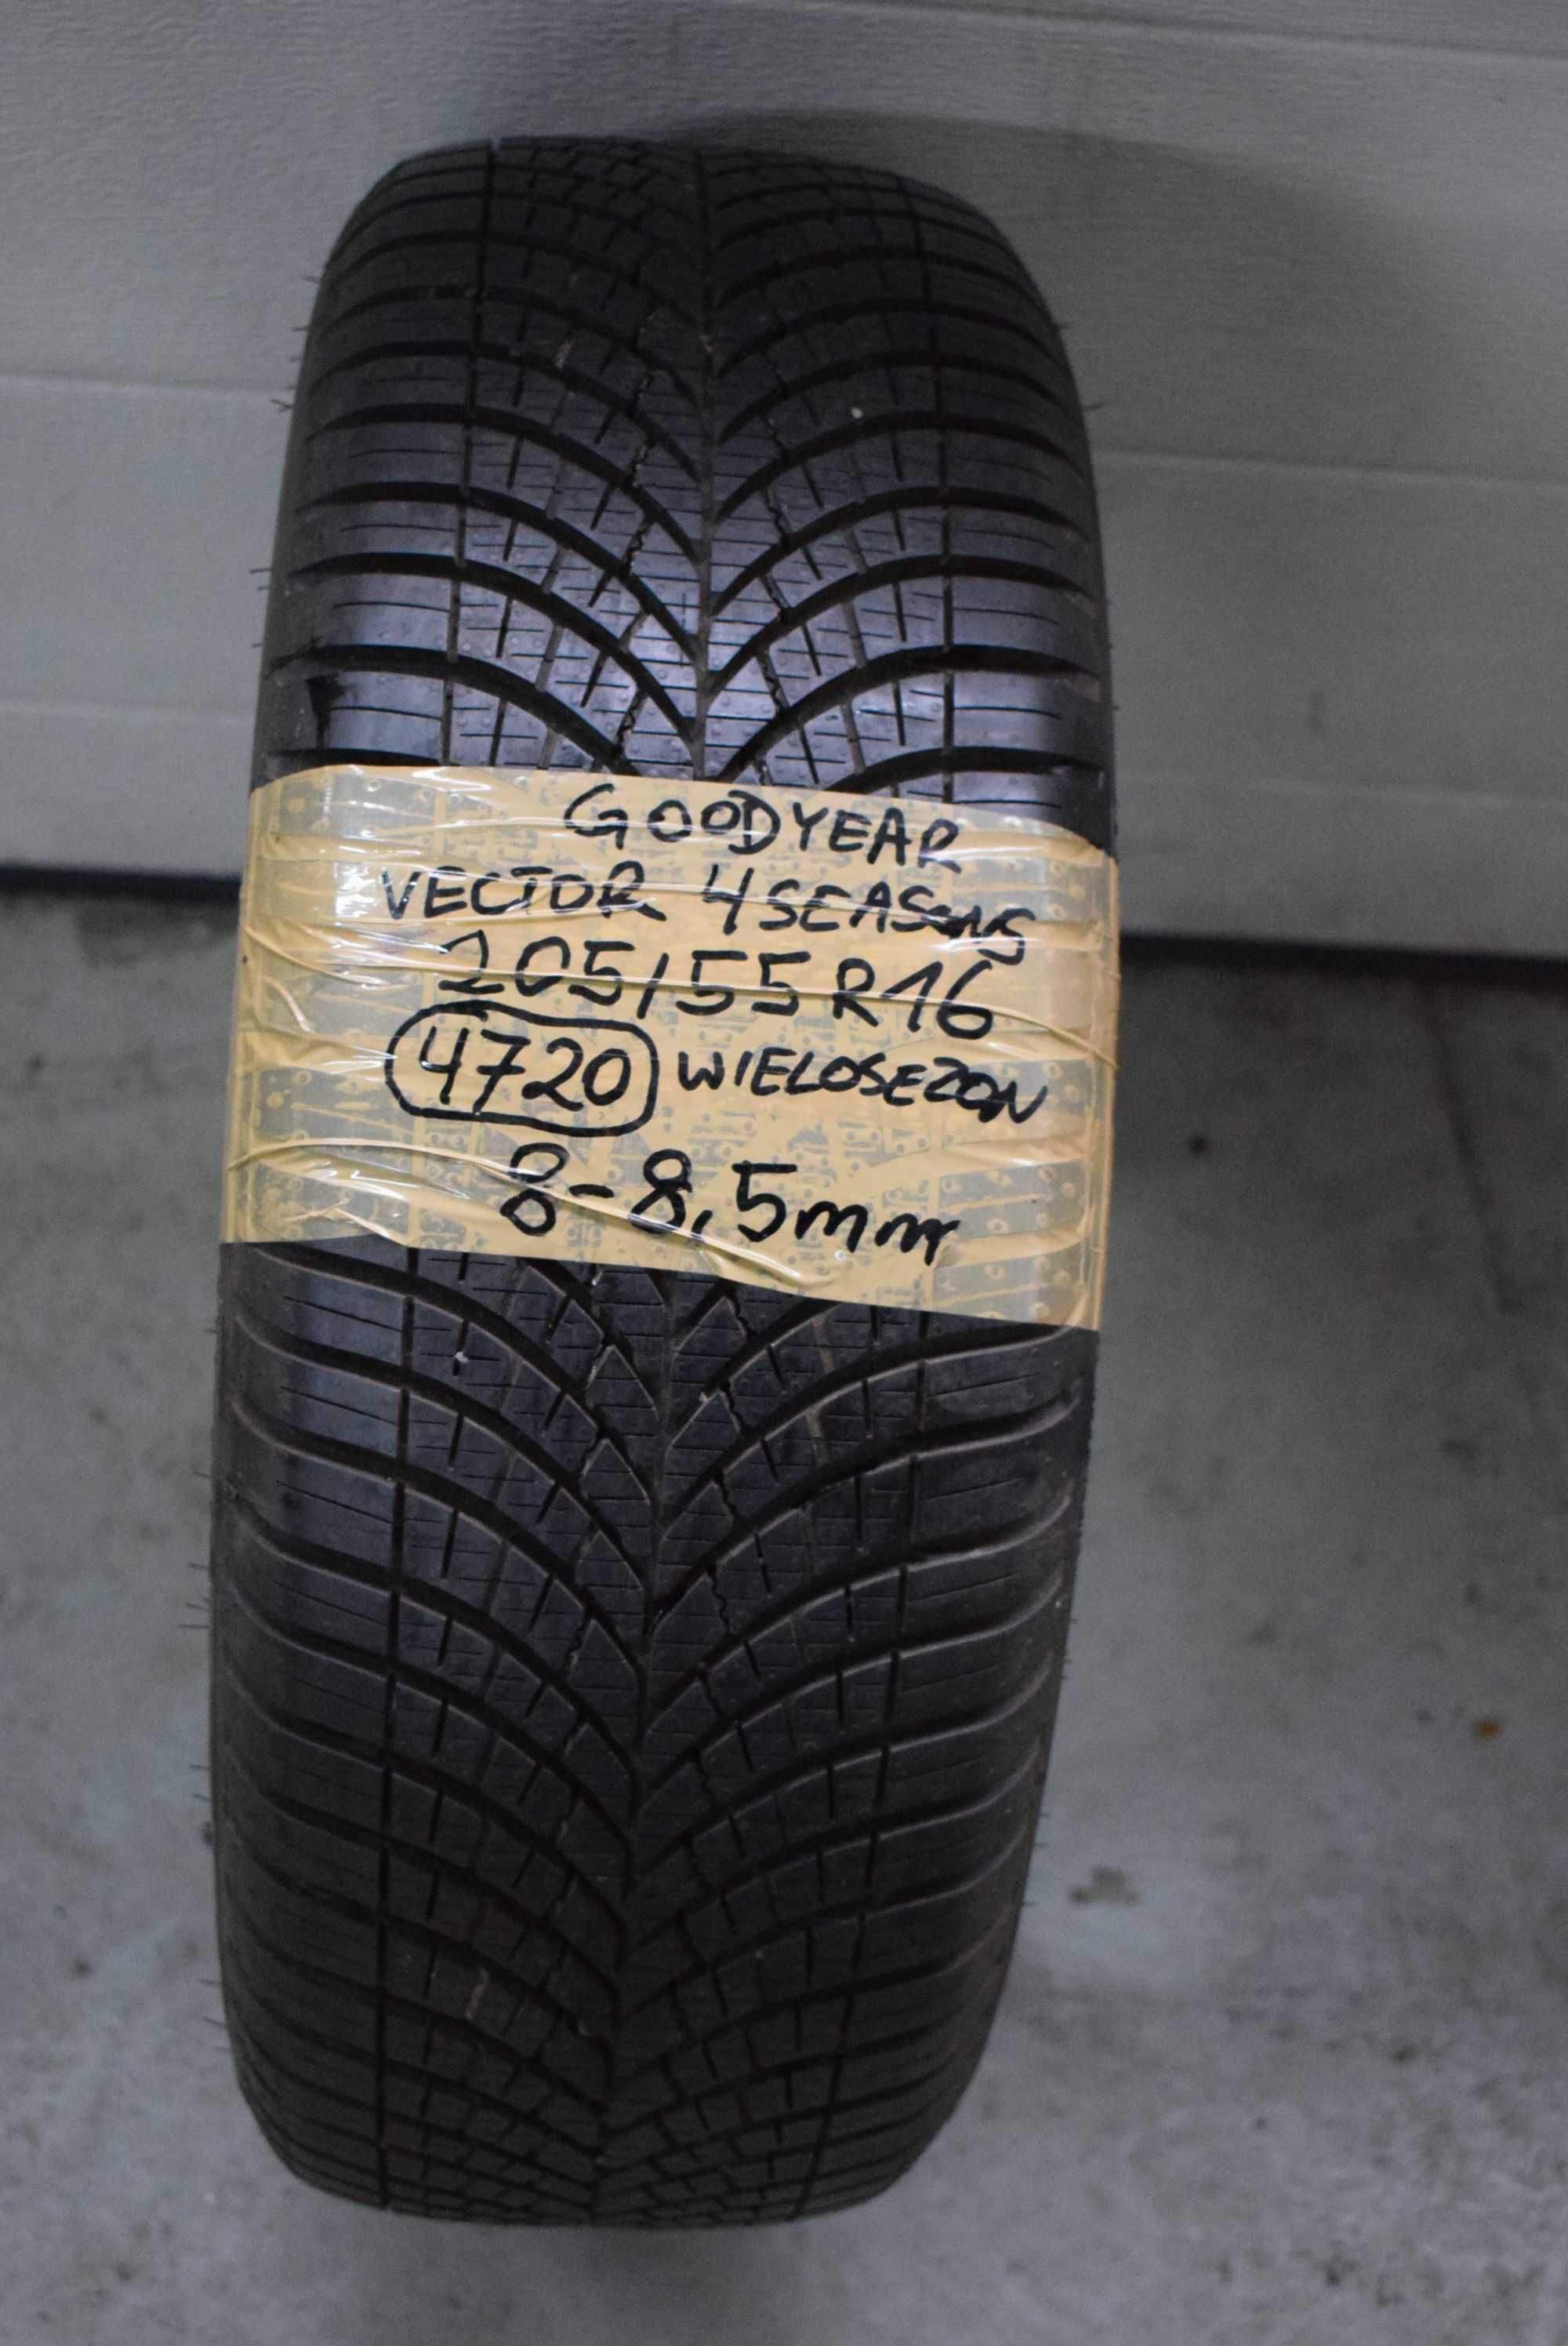 GOODYEAR
VECTOR 4SEASONS
205/55R16
4720 WIELOSEZON
8-8,5mm